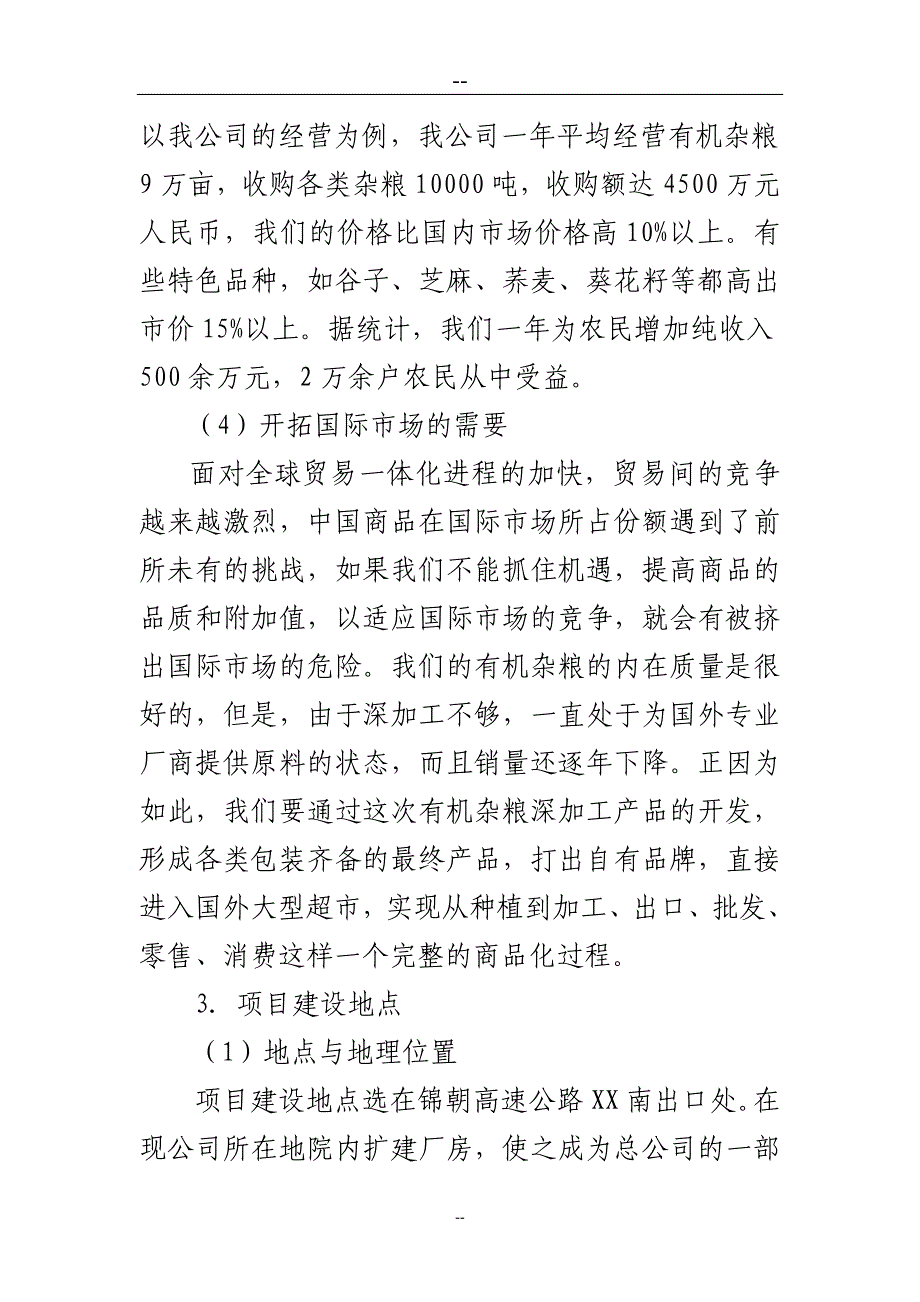 --
以我公司的经营为例，我公司一年平均经营有机杂粮
9 万亩，收购各类杂粮 10000 吨，收购额达 4500 万元
人民币，我们的价格比国内市场价格高 10%以上。有
些特色品种，如谷子、芝麻、荞麦、葵花籽等都高出
市价 15%以上。据统计，我们一年为农民增加纯收入
500 余万元，2 万余户农民从中受益。
（4）开拓国际市场的需要
面对全球贸易一体化进程的加快，贸易间的竞争
越来越激烈，中国商品在国际市场所占份额遇到了前
所未有的挑战，如果我们不能抓住机遇，提高商品的
品质和附加值，以适应国际市场的竞争，就会有被挤
出国际市场的危险。我们的有机杂粮的内在质量是很
好的，但是，由于深加工不够，一直处于为国外专业
厂商提供原料的状态，而且销量还逐年下降。正因为
如此，我们要通过这次有机杂粮深加工产品的开发，
形成各类包装齐备的最终产品，打出自有品牌，直接
进入国外大型超市，实现从种植到加工、出口、批发、
零售、消费这样一个完整的商品化过程。
3．项目建设地点
（1）地点与地理位置
项目建设地点选在锦朝高速公路 XX 南出口处。在
现公司所在地院内扩建厂房，使之成为总公司的一部
--